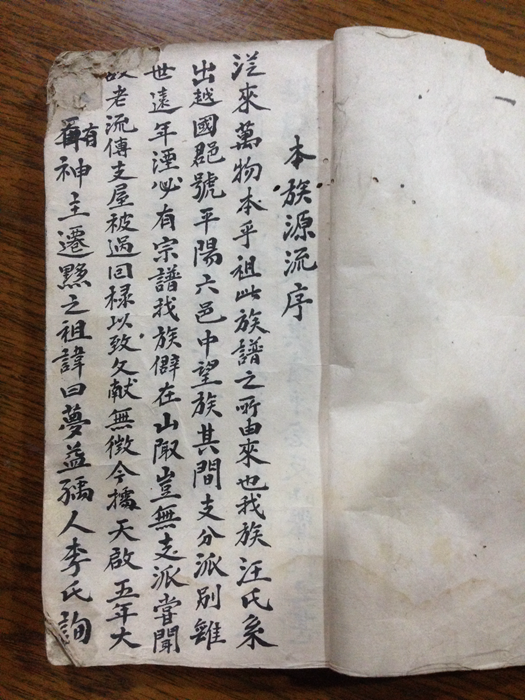 本族源流序
從來萬物本乎祖此族譜之所由來也我族汪氏系
出越國郡號平陽六邑中望族其間支分派別雖
世遠年湮必有宗譜我族僻在山陬豈無支派嘗聞
故老流傳支屋被遇回祿以致文献無徵今據天啟五年大
有神主遷黟之祖諱曰夢益孺人李氏詢